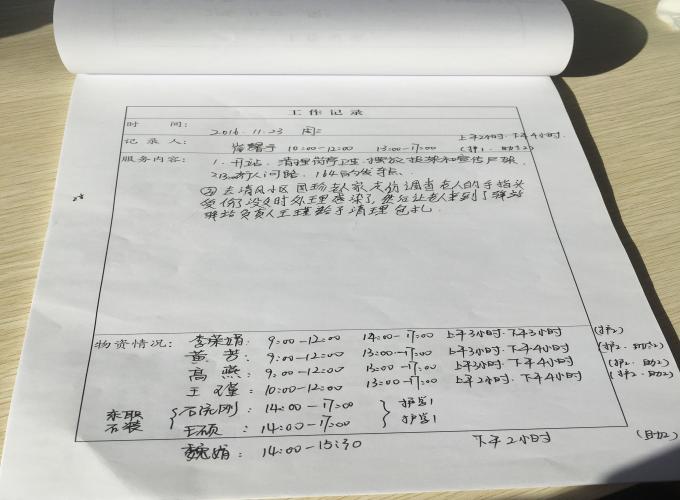 工作记录
时 间： 2016.11.23 周三
记录人： 10:00-12:00 13:00-17:00 上午2小时.下午4小时. (护1.助2)
服务内容： 1. 开站. 清理岗亭卫生.摆放 和宣传
2.13. 行人问路.
② 去清风小区 回访老人家 走访调查 老人的手指头
受伤了没及时处理感染了,然后让老人来到了驿站
驿站负责人王 给予清理包扎.
物资情况： 李荣娟： 9:00-12:00 14:00-17:00 上午3小时.下午3小时 (护2)
黄 芳： 9:00-12:00 13:00-17:00 上午3小时.下午4小时 (护2.助2)
高 燕： 9:00-12:00 13:00-17:00 上午3小时.下午4小时 (护2.助2)
王 瑾： 10:00-12:00 13:00-17:00 上午2小时.下午4小时 (护2.助2)
刚： 14:00-17:00 护学1
王硕： 14:00-17:00 护学1
魏娟： 14:00-15:30 下午2小时 (助2)